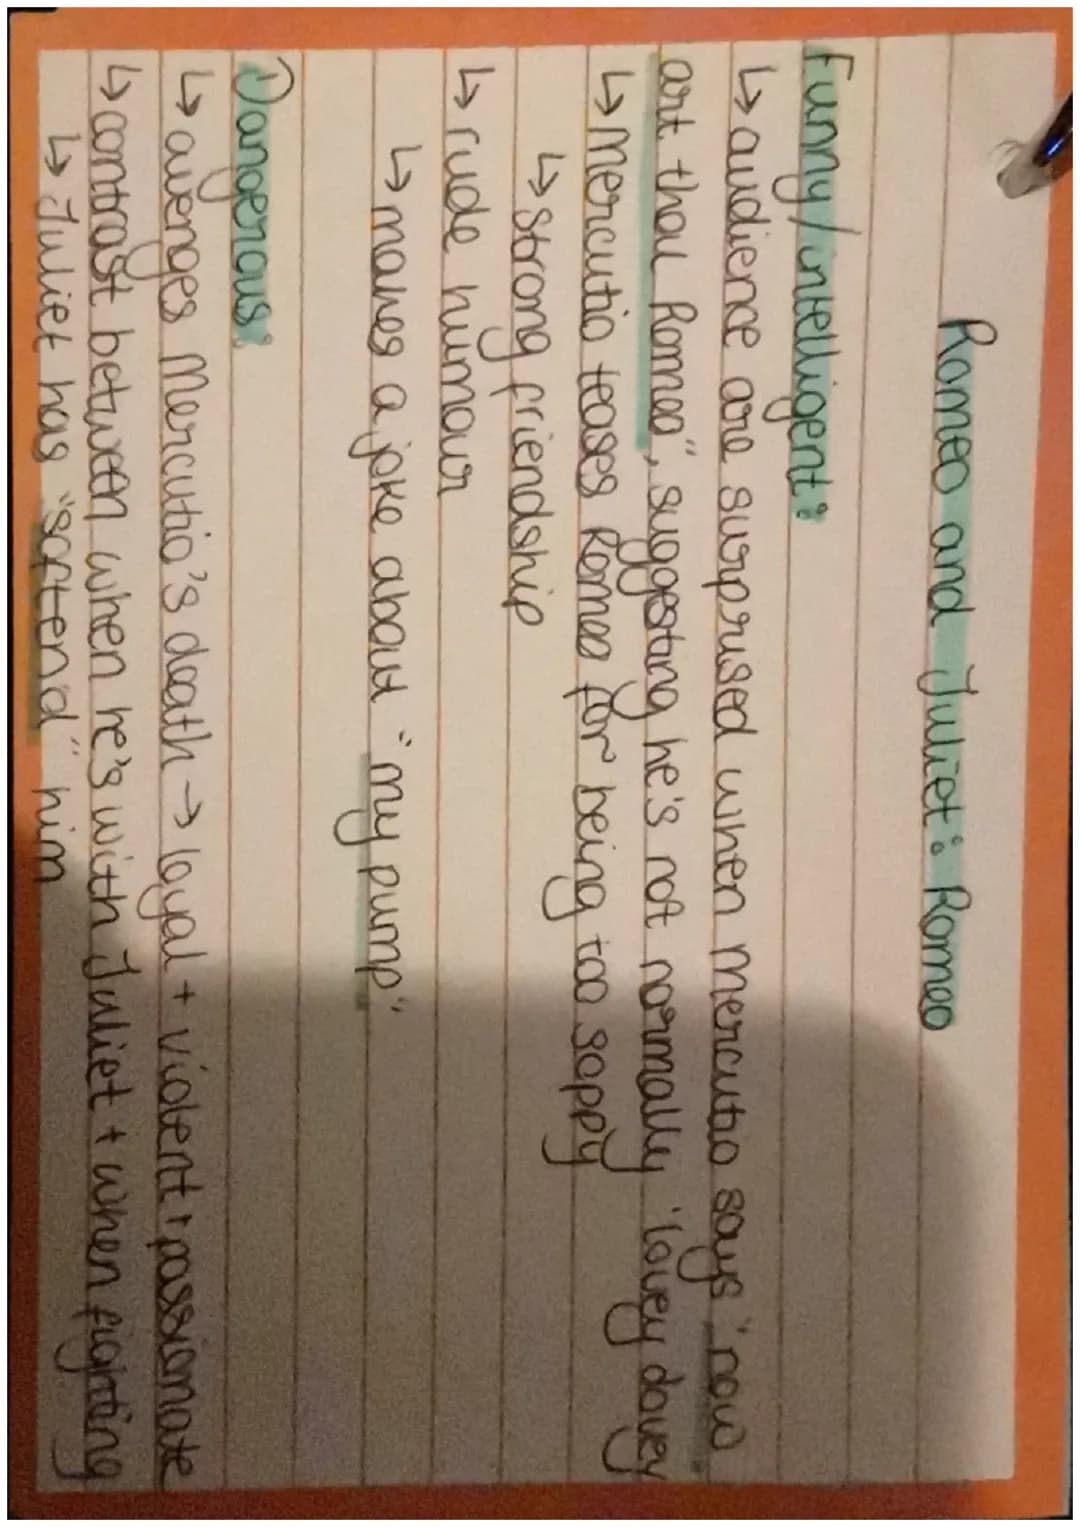 Romeo and Juliet: Romeo
Funny/intelligent:
↳ audience are surprised when mercutio says "now
art thou Romeo", suggesting he's not normally 'lovey dovey
↳ mercutio teases Romeo for being too sappy
↳ strong friendship
↳ rude humour
↳ makes a joke about "my pump"
Dangerous:
↳ avenges mercutio's death → loyal + violent + passionate
↳ contrast between when he's with Juliet + when fighting
↳ Juliet has "softend" him